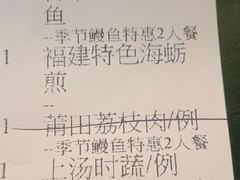 鱼
--季节鳗鱼特惠2人餐
1 福建特色海蛎
煎
--
--季节鳗鱼特惠2人餐
1 莆田荔枝肉/例
--季节鳗鱼特惠2人餐
1 上汤时蔬/例